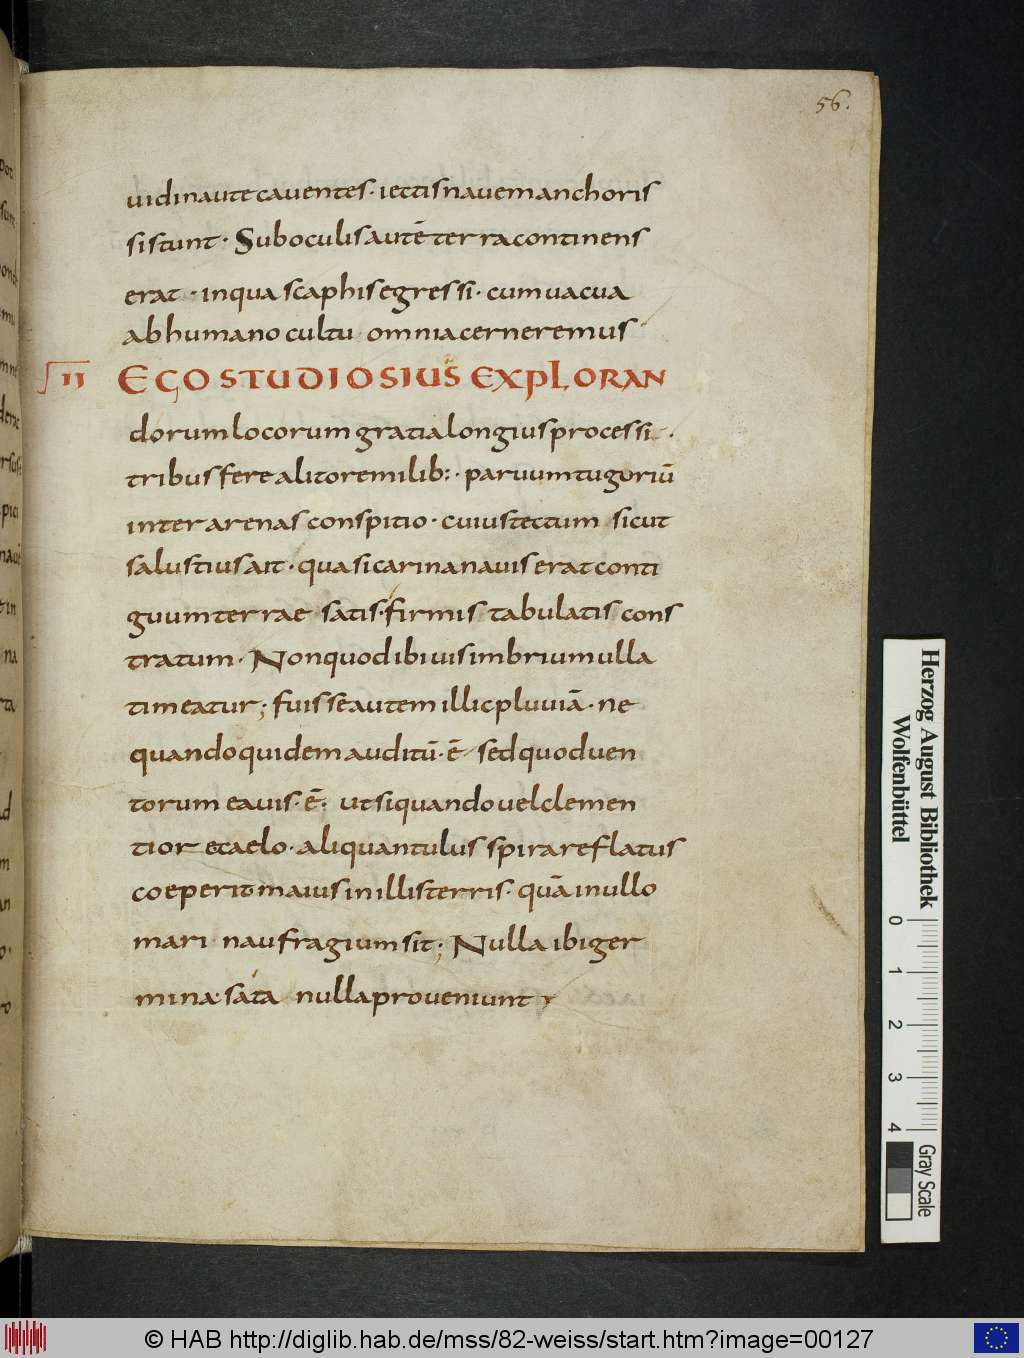 56.
uidi naute cauentes · iectis nauem anchoris
sistunt · Sub oculis autē terra continens
erat · in qua scaphis egressi · cum uacua
ab humano cultu omnia cerneremus
II EGO STUDIOSIUS EXPLORAN
dorum locorum gratia longius processi ·
tribus fere a litore milib: · paruum tuguriū
inter arenas conspitio · cuius tectum sicut
salustius ait · quasi carina nauis erat conti
guum terrae satis · firmis tabulatis cons
tratum · Non quod ibi uis imbrium ulla
timeatur; fuisse autem illic pluuiā · ne
quando quidem auditū · ē sed quod uen
torum ea uis · ē · ut si quando uel clemen
tior et caelo · aliquantulus spirare flatus
coeperit maius in illis terris · quā in ullo
mari naufragium sit; Nulla ibi ger
mina sata nulla proueniunt
Herzog August Bibliothek
Wolfenbüttel
0 1 2 3 4
Gray Scale
© HAB http://diglib.hab.de/mss/82-weiss/start.htm?image=00127